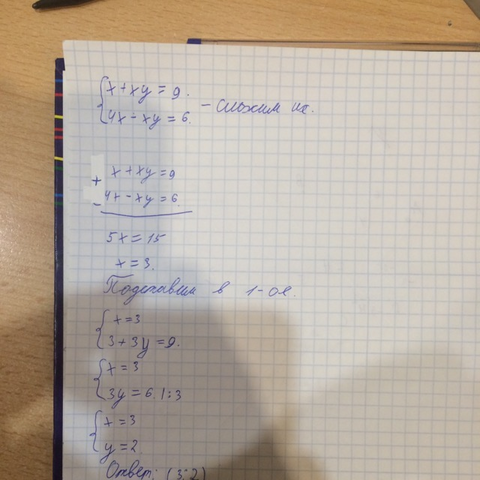 {x + xy = 9.
4x - xy = 6. - сложим их.
+ x + xy = 9
4x - xy = 6.
5x = 15
x = 3.
Подставим в 1-ое
{x = 3
3 + 3y = 9.
{x = 3
3y = 6. | : 3
{x = 3
y = 2
Ответ: (3; 2)